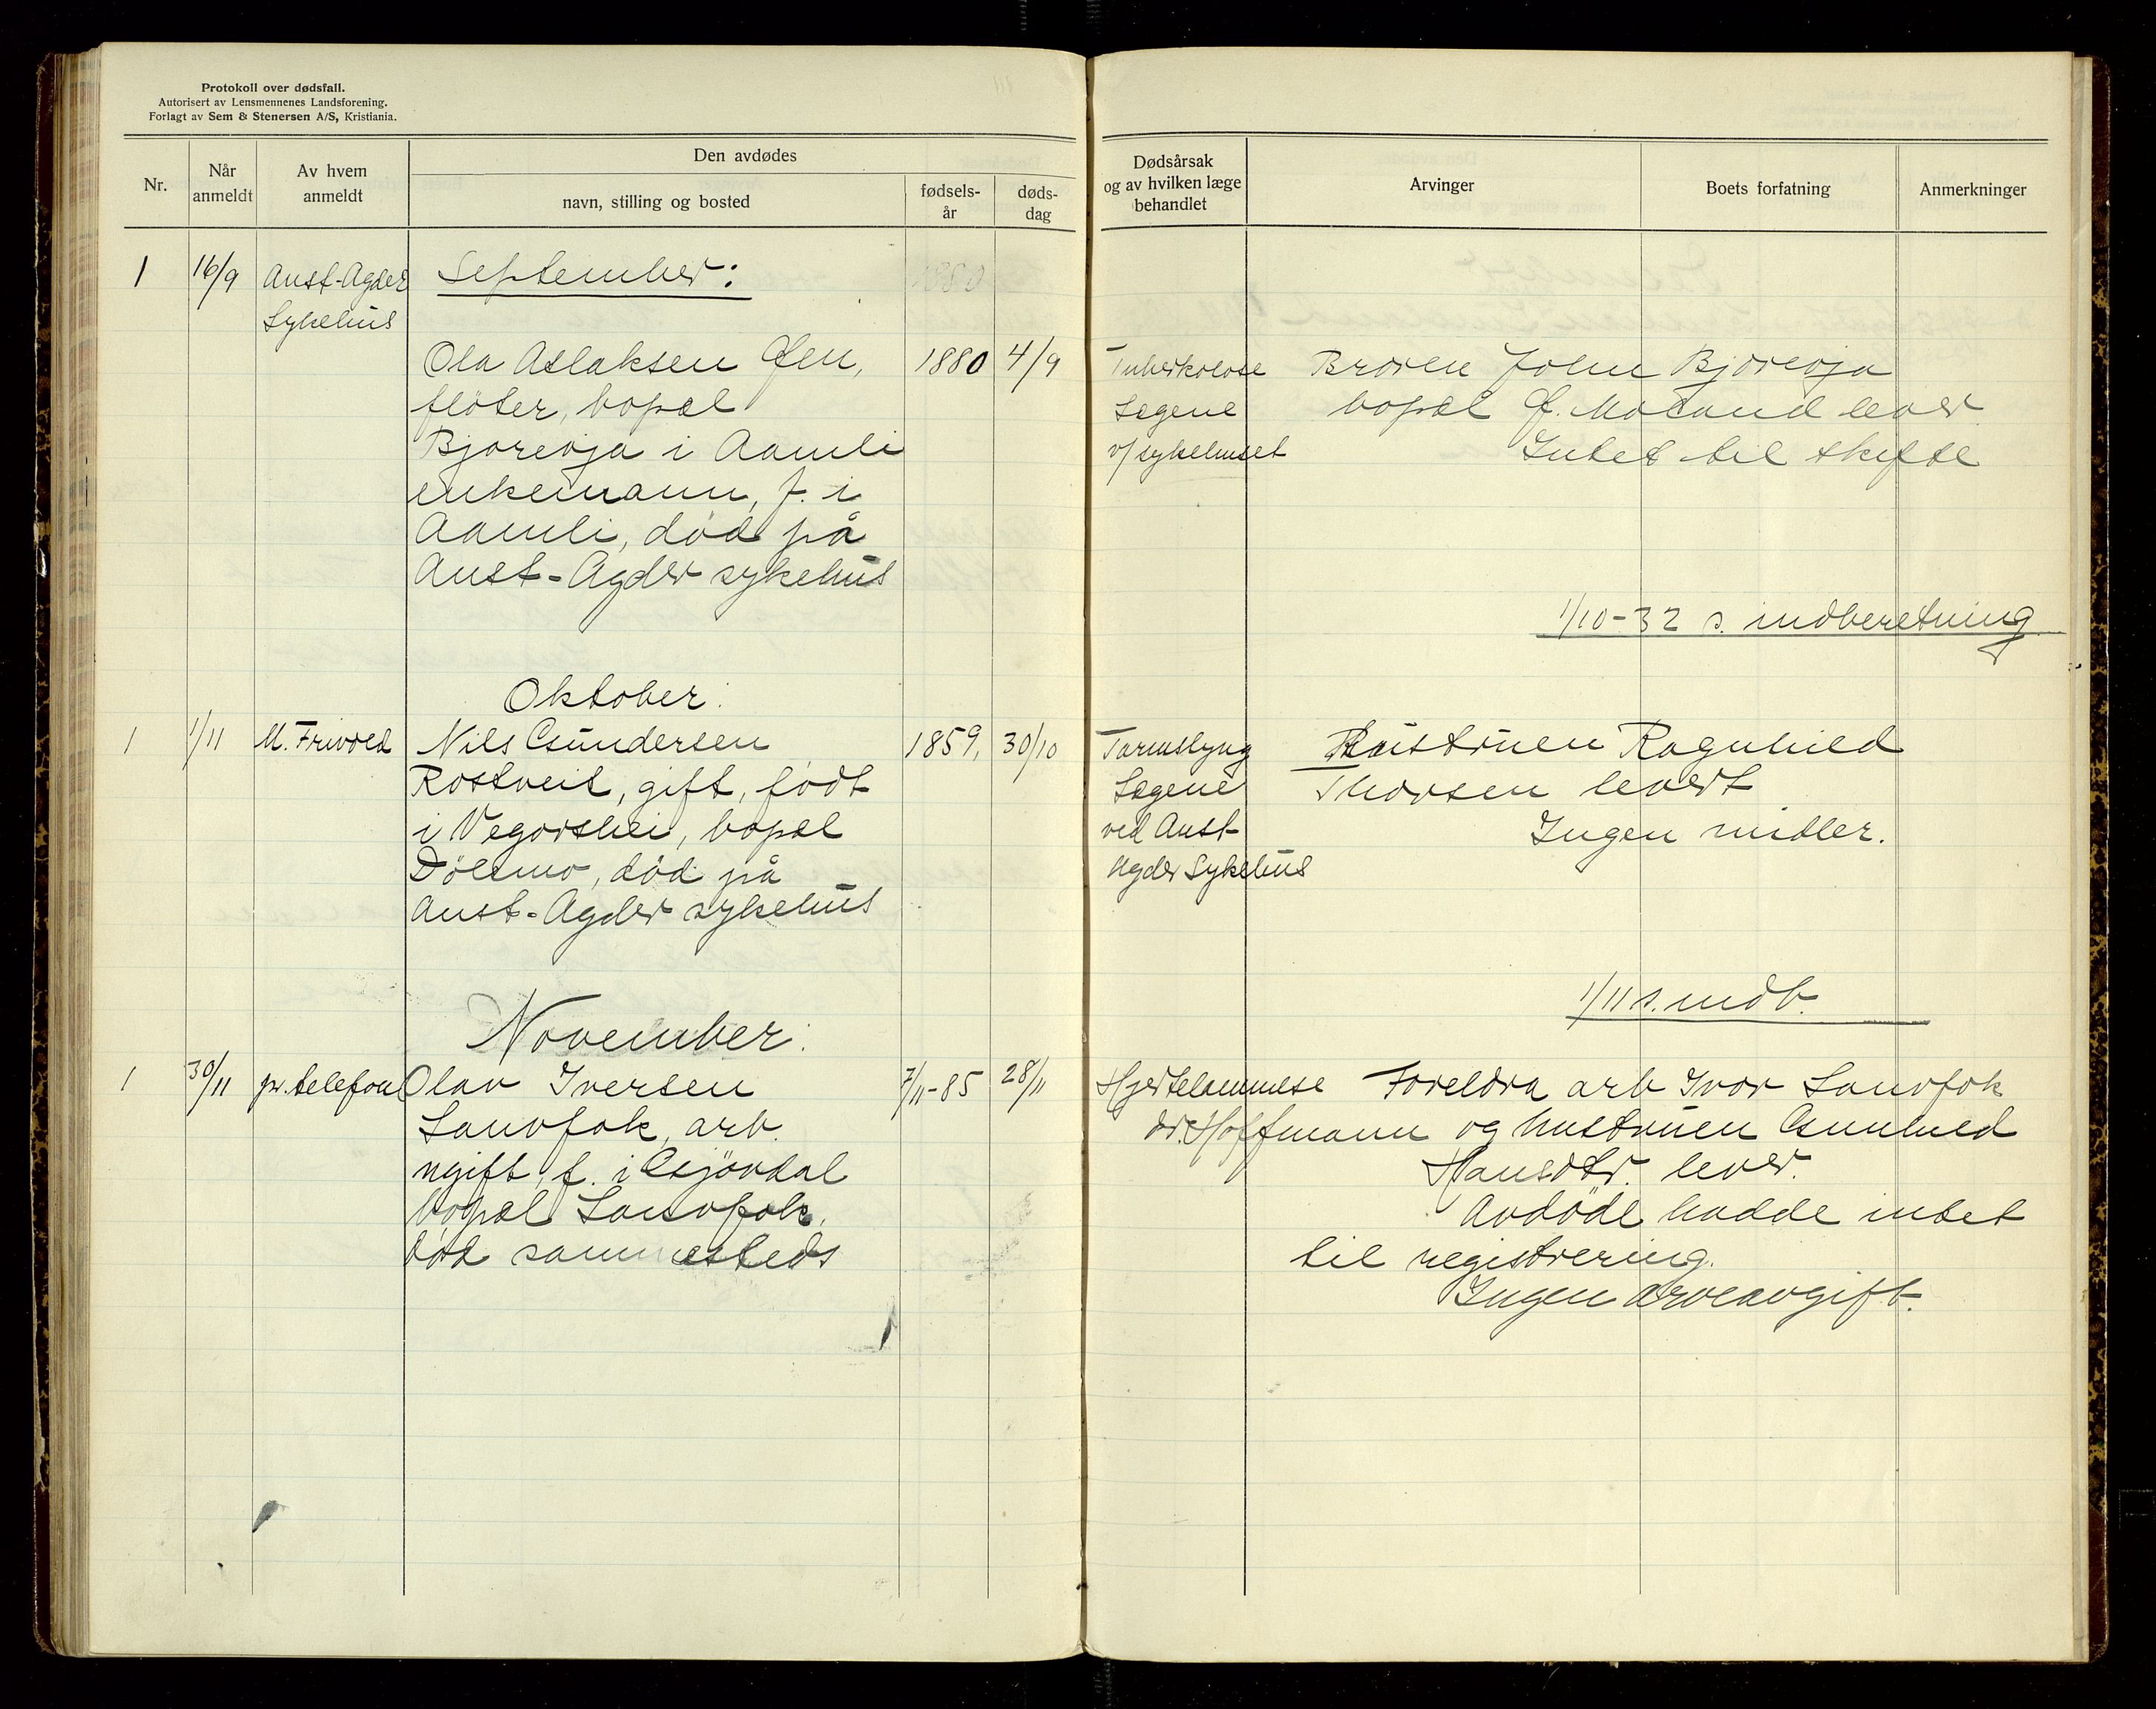 Protokoll over dødsfall.
Autorisert av Lensmennenes Landsforening.
Forlagt av Sem & Stenersen A/S, Kristiania.
Nr.
Når anmeldt
Av hvem anmeldt
Den avdødes
navn, stilling og bosted
fødsels-år
døds-dag
Dødsårsak og av hvilken læge behandlet
Arvinger
Boets forfatning
Anmerkninger
1 16/9 Aust-Agder
Sykehus
September:
Ola Aslaksen
fløter, bopæl
Bjorevja i Aamli
enkemann, f. i
Aamli, död på
Aust-Agder sykehus
1880 4/9
Tuberkolose
Lægene
v/sykehuset
Broren John Bjorevja
bopæl lever
Intet til skifte
1/10-32 s. indberetning
Oktober:
1 1/11 M. Frivold
Nils Gundersen
Rostveit, gift, födt
i Vegorshei, bopæl
Dölemo, död på
Aust-Agder sykehus
1859, 30/10
Tarmslyng
Lægene
ved Aust-
Agder Sykehus
Hustruen Ragnhild
Thorsen levert
Ingen midler.
1/11 s. indb.
November:
1 30/11 pr. telefon
Olav Iversen
arb.
ugift, f. i Gjövdal
bopæl
död sammesteds
7/11-85 28/11
Hjertelammelse
dr. Hoffmann
Foreldra arb Ivar
og hustruen Gunhild
Hansdtr. lever.
Avdöde hadde intet
til registrering.
Ingen arveavgift.